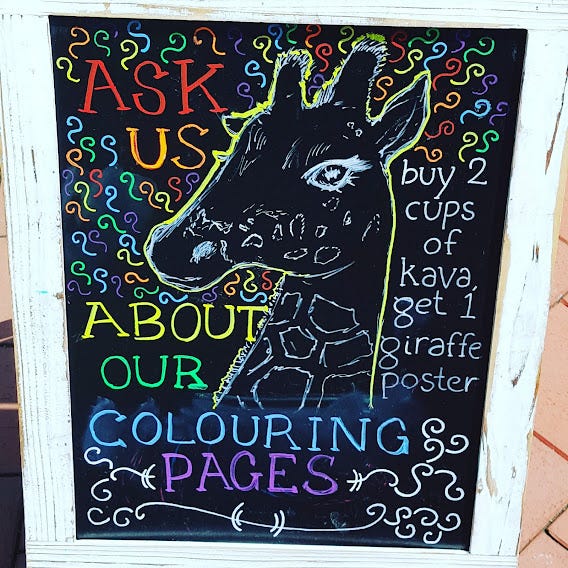 ASK
US
ABOUT
OUR
COLOURING
PAGES
buy 2
cups
of
kava,
get 1
giraffe
poster